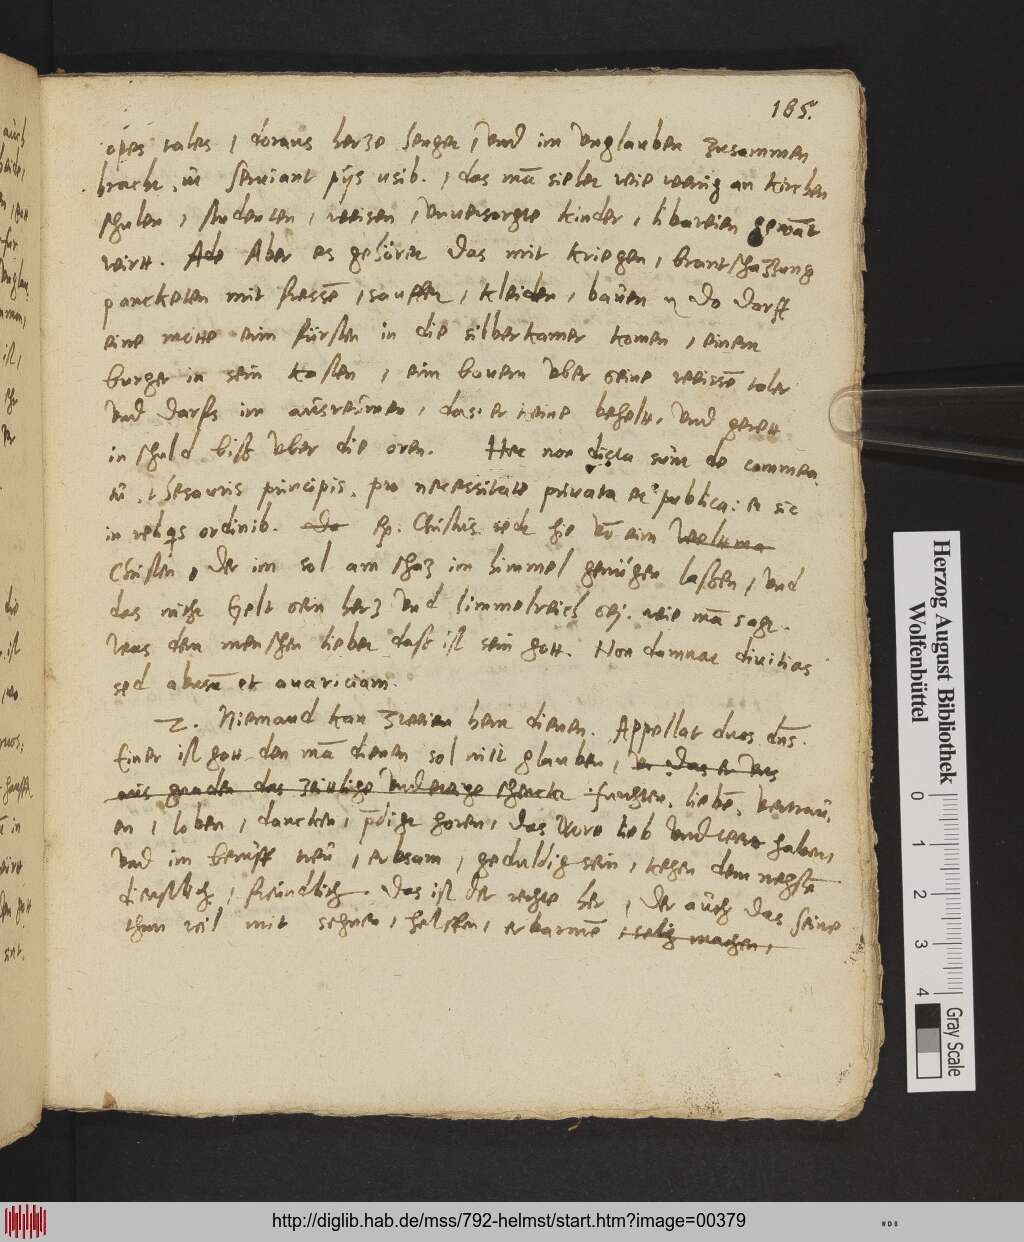 185.
opes tales, doraus herze henget, und im unglauben zusammen
bracht, serviant pijs usib., das mā siehet wie wenig an kirchen
schulen, studenten, weisen, unversorgte kinder, libareien gewāt
wirtt. Ade Aber es gehöret das mit kriegen, brantschazzung
pancketen mit fressē, sauffen, kleiden, baüen do darff
eine motte eim fürsten in die silberkamer komen, einem
burger in sein kasten, eim bauern uber seine weissē taler
und darffs im aüsreümen, das er keine behelt, und gerett
in schuld biss uber die oren. Hec non dicta sunt de commea
tu, thesauris principis, pro necessitate privata et publica: et sic
in reliqs ordinib. Do Christus redt hie vō eim
Christen, der im sol am schaz im himmel genügen lassen, und
das nicht gelt sein herz und himmelreich sej. wie mā sagt.
was dem menschen lieber dast ist sein gott. Non damnat divitias
sed abusū et avariciam.
2. Niemand kan zweien hern dienen. Appellat duos dn̄s.
Einer ist gott, den mā dienen sol mitt glauben, er das er uns
aus gnaden das zeittlige und ewige schenckt furchten, liebē, vertraü,
en, loben, dancken, p̄digt horen, das wort lieb und wert haben,
und im beruff treü, erbsam, geduldig sein, kegen dem negstē
dienstlich, freündlich. Das ist der rechte her, der aüch das seine
thun wil mit sehnen, helffen, erbarmē, selig machen,
Herzog August Bibliothek
Wolfenbüttel
0 1 2 3 4
Gray Scale
http://diglib.hab.de/mss/792-helmst/start.htm?image=00379